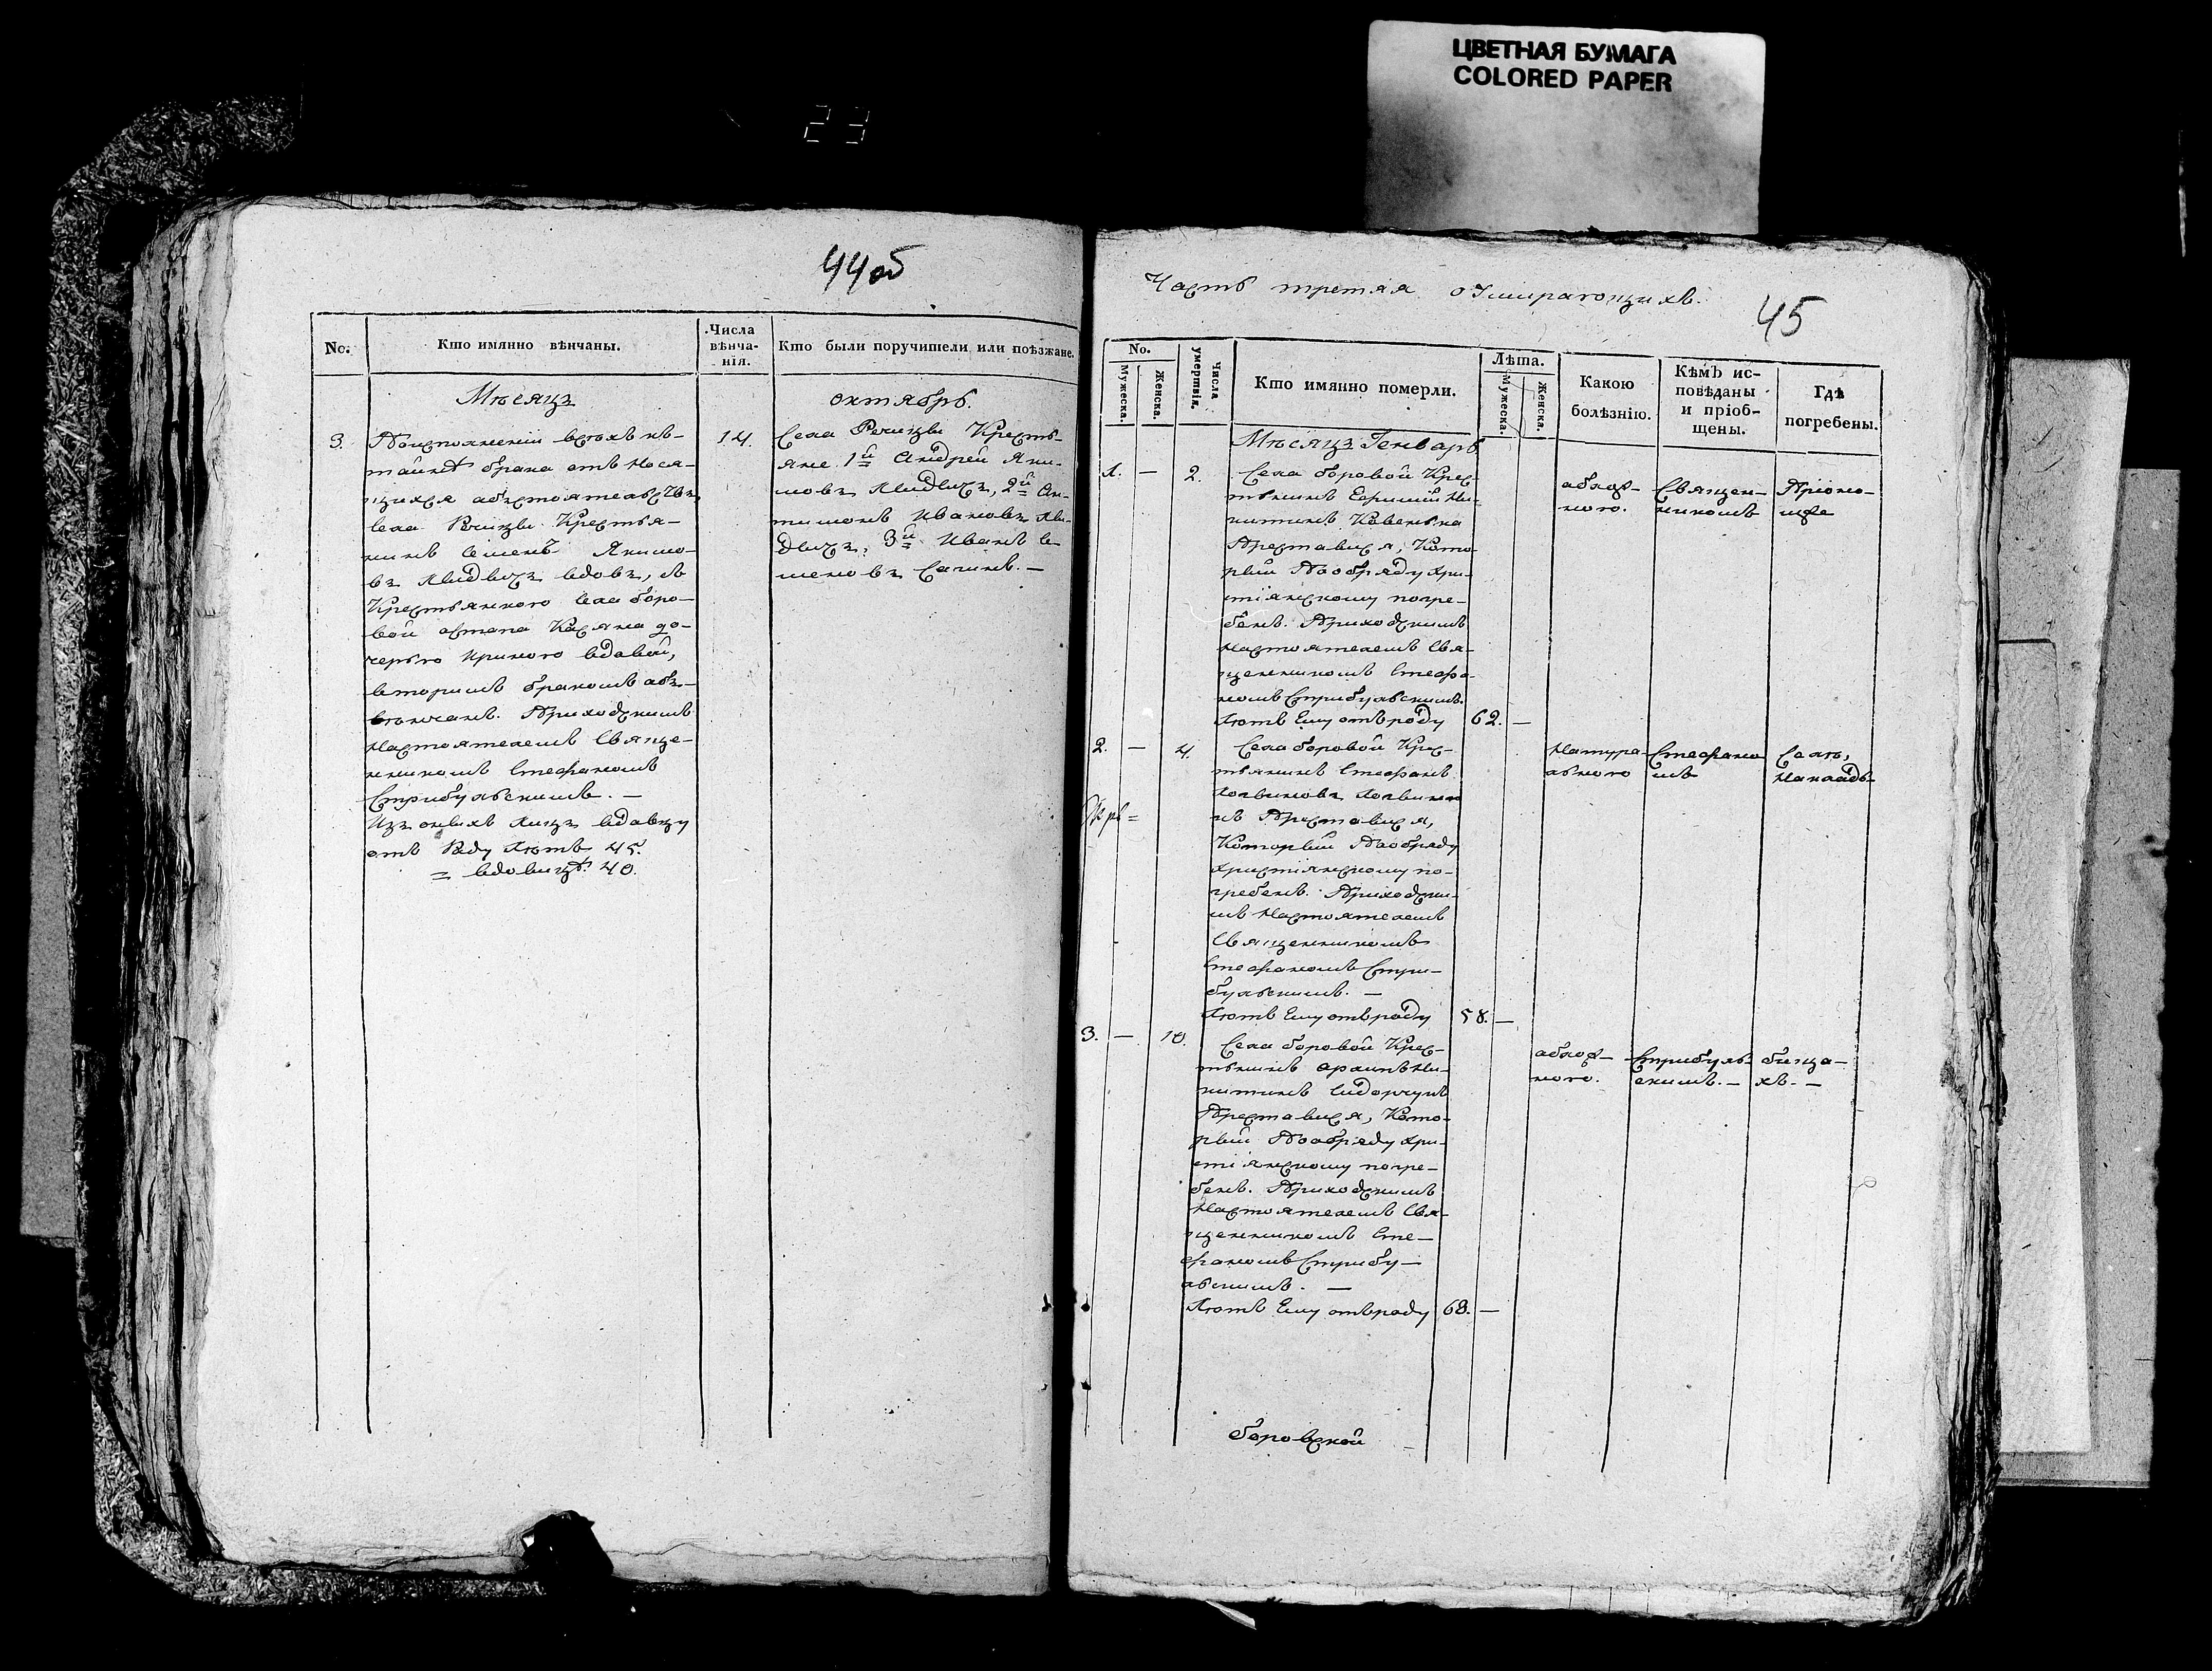 ЦВЕТНАЯ БУМАГА
COLORED PAPER
23
44об
No.
Кто имянно вѣнчаны.
Числа вѣнча-нія.
Кто были поручители или поѣзжане.
Мѣсяцъ
октябрь.
3.
14.
По исполненіи всѣхъ къ
тайнѣ брака относя-
щихся
села Речицы Крестья-
нинъ Семенъ Якимо-
въ вдовъ, съ
села боро-
вой Касяна до-
черью вдовой,
вторимъ бракомъ объ-
вѣнчанъ. Приходскимъ
Настоятелемъ Свяще-
нникомъ Стефаномъ
Стрибульскимъ. —
Изъ онихъ лицъ вдовцу
отъ Роду Лѣтъ 45.
= вдовицѣ. 40.
Села Речицы Кресть-
яне 1й Андрей Яки-
мовъ 2й Ан-
Ивановъ
3й Иванъ Се-
меновъ —
Часть третяя о Умирающихъ.
45
No.
Мужеска.
Женска.
Числа умертвія.
Кто имянно померли.
Лѣта.
Мужеска.
Женска.
Какою болѣзнію.
Кѣмъ ис-
повѣданы
и пріоб-
щены.
Гдѣ
погребены.
Мѣсяцъ Генварь
1. — 2.
Села боровой Крес-
тянинъ Ни-
китинъ
Преставися, Кото-
рый По обряду Хри-
стіянскому погре-
бенъ. Приходскимъ
Настоятелемъ Свя-
щенникомъ Стефа-
номъ Стрибульскимъ.
Лѣтъ Ему отъ роду 62. —
Священ-
никомъ
2. — 4.
Села боровой Крес-
тянинъ Стефанъ
Преставися,
Который По обряду
Христіянскому по-
гребенъ. Приходски-
мъ Настоятелемъ
Священникомъ
Стефаномъ Стри-
бульскимъ. —
Лѣтъ Ему отъ роду 58. —
Натура-
льною
Стефано
мъ
3. — 10.
Села боровой Крес-
тянинъ Ни-
китинъ Сидорчукъ
Преставися, Кото-
рый По обряду Хри-
стіянскому погре-
бенъ. Приходскимъ
Настоятелемъ Свя-
щенникомъ Сте-
фаномъ Стрибу-
льскимъ. —
Лѣтъ Ему отъ роду 68. —
Стрибуль-
скимъ. —
боровской